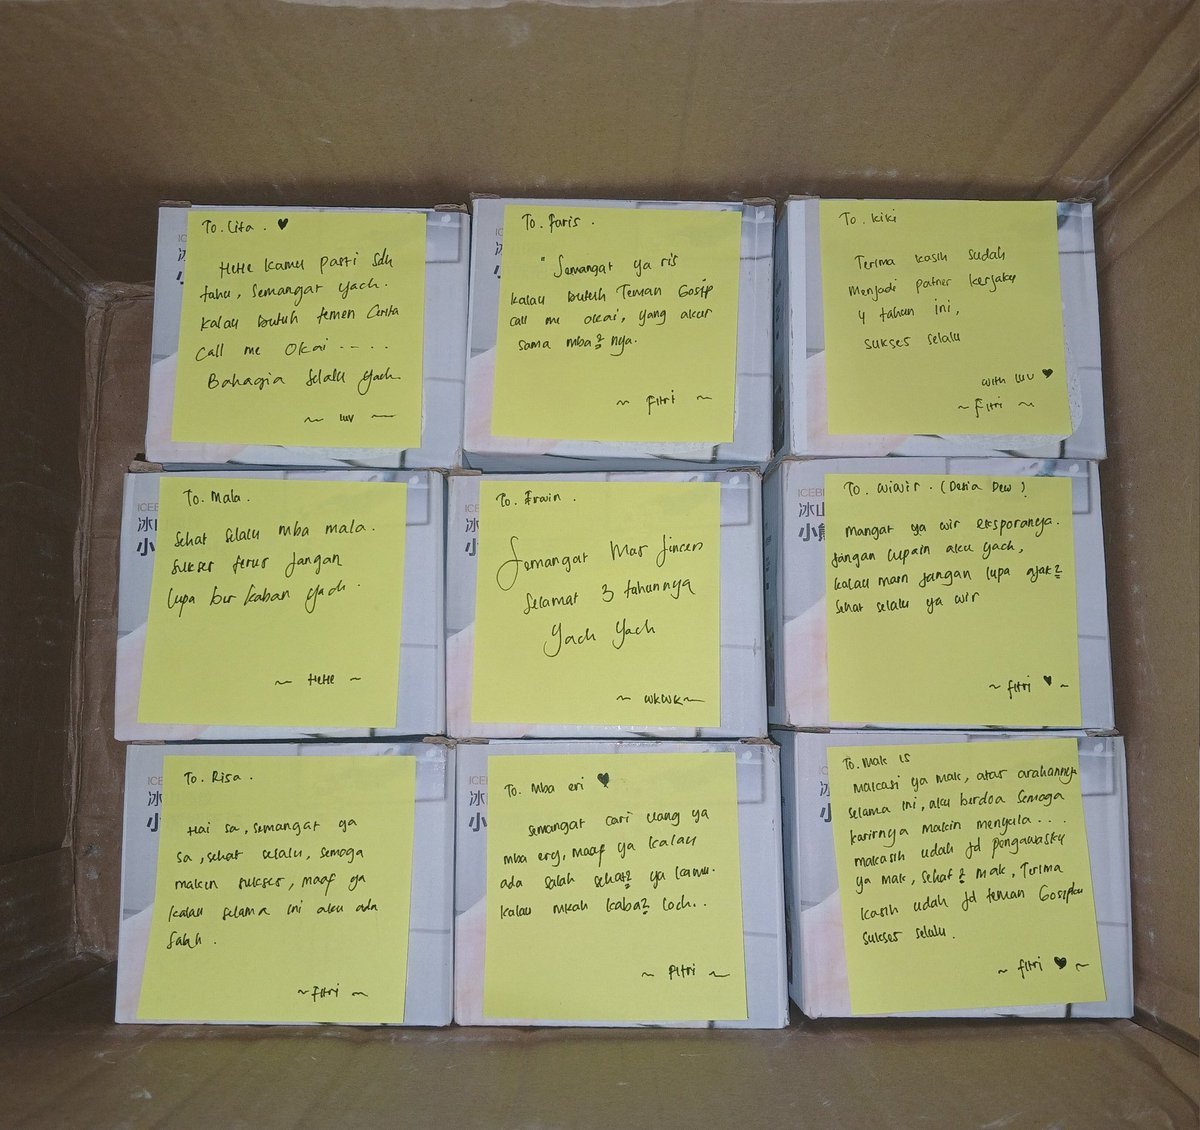 To. Lita. ♥
HeHe kamu pasti sdh
tahu, semangat yach.
kalau butuh temen Cerita
Call me Okai.....
Bahagia selalu yach
~ luv ~
To. Faris.
"Semangat ya ris
kalau butuh Teman Gosip
call me okai, yang akur
sama mba2 nya.
~ Fitri ~
To. Kiki
Terima kasih sudah
menjadi patner kerjaku
4 tahun ini,
sukses selalu
with luv ♥
~ Fitri ~
ICEBE
冰山
小熊
To. Mala.
Sehat selalu mba mala.
sukses terus jangan
lupa ber kaban yach.
~ HeHe ~
To. Erwin.
Semangat Mas
Selamat 3 tahunnya
Yach Yach
~ wkwk ~
To. WiWir. (Desia Dew)
mangat ya wir eksporanya.
Jangan lupain aku yach,
kalau main jangan lupa ajak2
sehat selalu ya wir
~ Fitri ♥ ~
To. Risa.
Hai sa, semangat ya
sa, sehat selalu, semoga
makin sukses, maaf ya
kalau selama ini aku ada
salah.
~ Fitri ~
To. Mba eri ♥
semangat cari uang ya
mba ery, maaf ya kalau
ada salah sehat2 ya kamu.
kalau nikah kaba2 loch..
~ Fitri ~
To. Mak is
makasi ya mak, atas arahannya
selama ini, aku berdoa semoga
karirnya makin menyala...
makasih udah jd pengawasku
ya mak, sehat2 mak, Terima
kasih udah jd teman Gosipku
sukses selalu.
~ Fitri ♥ ~